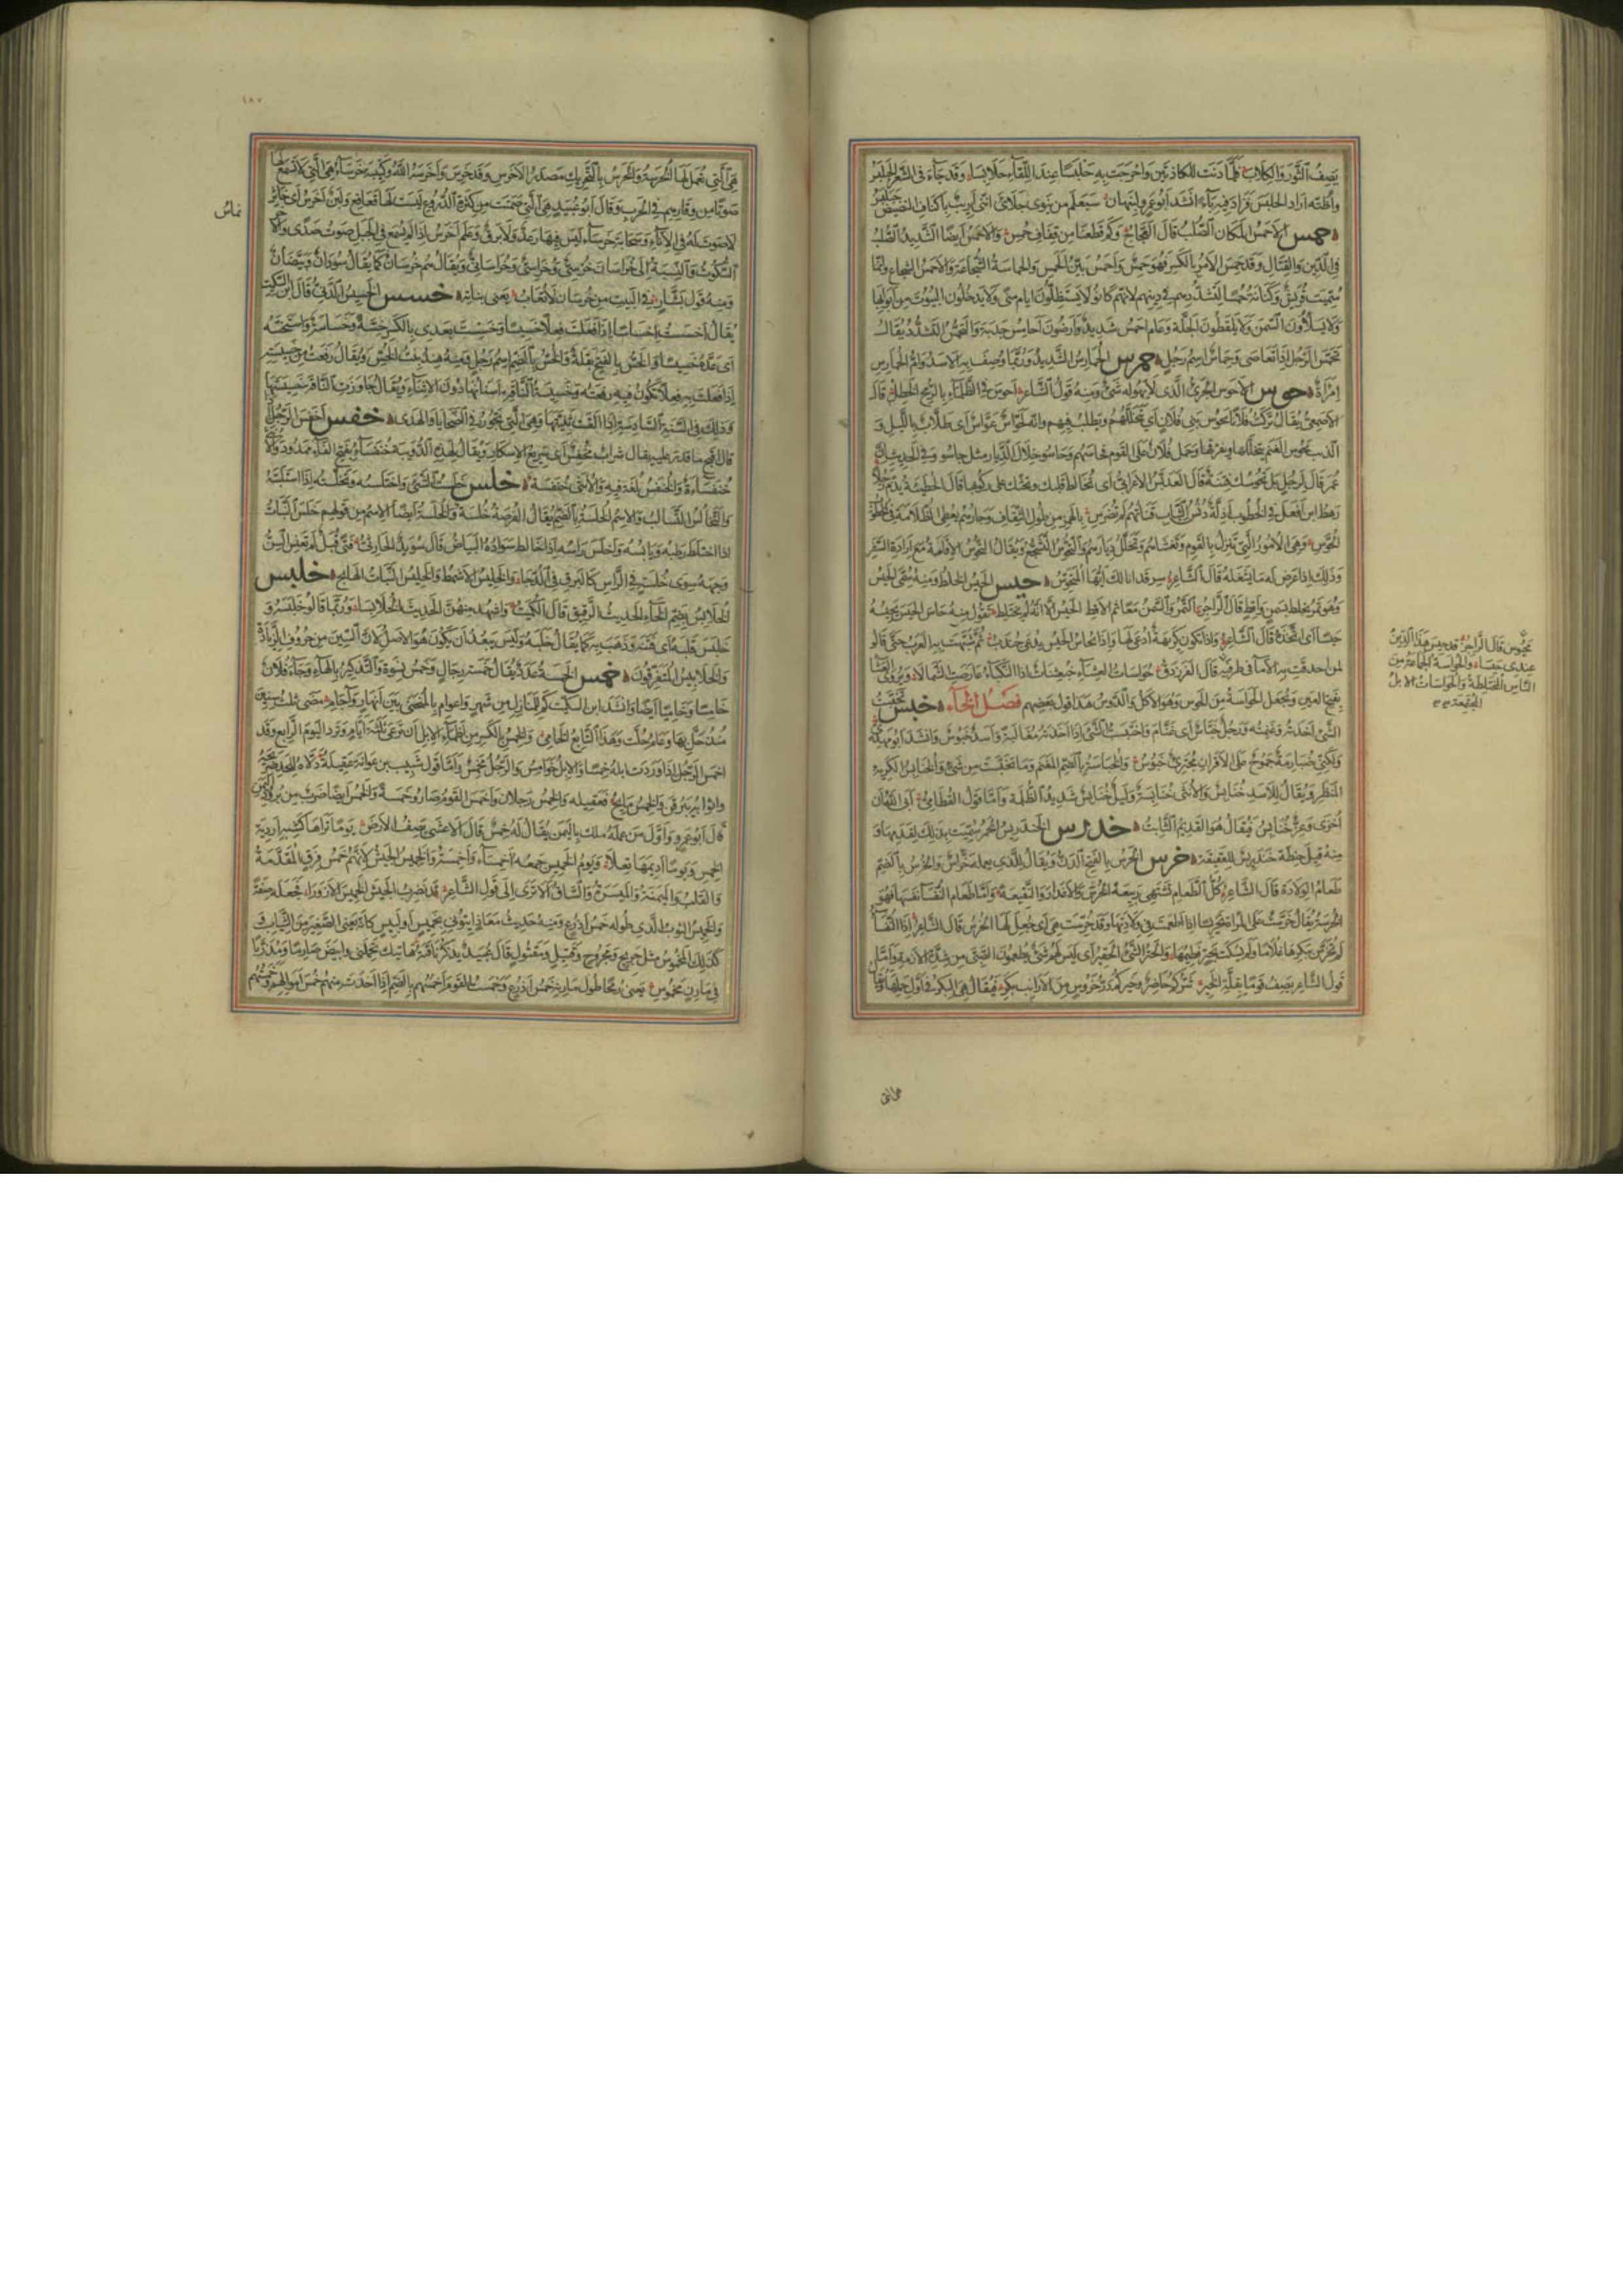 يصف الثور والكلاب فلما دنت للكاذتين واحرجت به حلبسا عند اللقاء حلابسا وقد جاء في الشعر الحبلبس
واظنه اراد الحلبس فزاد فيه باء انشد ابو عمرو لنبهان سيعلم من ينوي جلائي انني اريب باكناف النضيض حبلبس
حمس الاحمس المكان الصلب قال العجاج وكم قطعنا من قفاف حمس والاحمس ايضا الشديد الصلب
في الدين والقتال وقد حمس الامر بالكسر فهو حمس واحمس بين الحمس والحماسة الشجاعة والاحمس الشجاع وانما
سميت قريش وكنانة حمسا لتشددهم في دينهم لانهم كانوا لا يستظلون ايام منى ولا يدخلون البيوت من ابوابها
ولا يسلؤون السمن ولا يلقطون الجلة وعام احمس شديد وارضون احامس جدبة والتحمس التشدد يقال
تحمس الرجل اذا تعاصى وحماس اسم رجل حمرس الحمارس الشديد وربما وصف به الاسد وام الحمارس
امراة حوس الاحوس الجريء الذي لا يهوله شيء ومنه قول الشاعر احوس في الظلماء بالرمح الخطل قال
الاصمعي يقال تركت فلانا يحوس بني فلان اي يتخللهم ويطلب فيهم وانه لحواس عواس اي طلاب بالليل و
الذئب يحوس الغنم يتخللها ويفرقها وحمل فلان على القوم فحاسهم وحاسو خلال الديار مثل جاسو وفي الحديث ان
عمر قال لرجل بل تحوسك فتنة قال العدبس الاعرابي اي تخالط قلبك وتحثك على ركوبها قال الحطيئة يذم رجلا
رهط ابن افعل في الخطوب اذلة دنس الثياب قناتهم لم تضرس بالهمز من طول الثقاف وجارهم يعطى الظلامة في الخطوب
الحوس وهي الامور التي تنزل بالقوم وتغشاهم وتخلل ديارهم والتحوس التشجع ويقال التحوس الاقامة مع ارادة السفر
وذلك اذا عرض له ما يشغله قال الشاعر سر قد انا لك ايها المتحوس حيس الحيس الخلط ومنه سمى الحيس
وهو تمر يخلط بسمن واقط قال الراجز التمر والسمن معا ثم الاقط الحيس الا انه لم يختلط تقول منه حاس الحيس يحيسه
حيسا اي اتخذه قال الشاعر واذا تكون كريهة ادعى لها واذا يحاس الحيس يدعى جندب ثم شبهت به العرب حتى قالو
لمن احدقت به الاما في طرفيه قال الفرزدق حواسات العشاء خبعثنات اذا النكباء عارضت الشمالا ويروى العشاء
بفتح العين ويجعل الحواسة من الحوس وهو الاكل والدوس هذا قول بعضهم فصل الخاء خبس تخبست
الشيء اخذته وغنمته ورجل خباس اي غنام واختبست الشيء اذا اخذته مغالبة واسد خبوس وانشد ابو مهدي
ولكني ضبارمة جموح على الاقران مجترئ خبوس والخباسة بالضم المغنم وما تخبست من شيء والخنابس الكريه
المنظر ويقال للاسد خنابس والانثى خنابسة وليل خنابس شديد الظلمة واما قول القطامي ابى الله ان
اخزى وعز خنابس فيقال هو القديم الثابت خدرس الخندريس الخمر سميت بذلك لقدمها و
منه قيل حنطة خندريس للعتيقة خرس الخرس بالفتح الدن ويقال للذي يعمله خراس والخرس بالضم
طعام الولادة قال الشاعر كل الطعام تشتهي ربيعة الخرس والاعذار والنقيعة واما طعام النفساء نفسها فهو
الخرسة يقال خرست على المراة تخريسا اذا اطعمت في ولادتها وقد خرست هي اي جعل لها الخرس قال الشاعر اذا النفساء
لم تخرس ببكرها غلاما ولم يسكت بحتر فطيمها والحتر الشيء الحقير اي ليس لهم شيء يطعمون الصبي من شدة الازمة واما
قول الشاعر يصف قوما بقلة الخير شركم حاضر وخيركم در خروس من الارانب بكر فيقال هي البكر في اول حملها ويقال
يحوس قال الراجز قد حيس هذا الدين
عندي حيسا والحواسة الجماعة من
الناس المختلطة والحواسات الابل
المجتمعة
١٨٧
هي التي تعمل لها الخرسة والخرس بالتحريك مصدر الاخرس وقد خرس واخرسه الله وكتيبة خرساء هي التي لا تسمع لها
صوتا من وقارهم في الحرب وقال ابو عبيد هي التي صمتت من كثرة الدروع ليست لها قعاقع ولبن اخرس اي خاثر
لا صوت له في الاناء وسحابة خرساء ليس فيها رعد ولا برق وعلم اخرس اذا لم يسمع في الجبل صوت صدى
السكوت والنسبة الى خراسان خرسي وخراسي وخراساني ويقال هم خرسان كما يقال سودان وبيضان
ومنه قول بشار في البيت من خرسان لا تعاب يعني بناته خسس الخسيس الدنيء قال ابن السكيت
يقال اخسست اخساسا اذا فعلت فعلا خسيسا وخسست بعدي بالكسر خسة وخساسة واستخسه
اي عده خسيسا والخس بالفتح بقلة والخس بالضم اسم رجل ومنه هند بنت الخس ويقال رفعت من خسيسته
اذا فعلت به فعلا تكون فيه رفعته وخسيسة الناقة اسنانها دون الاثناء ويقال جاوزت الناقة خسيستها
وذلك في السنة السادسة اذا القت ثنيتها وهي التي تجوز في الضحايا والهدي خفس اخفس الرجل اذا
قال اقبح ما قدر عليه يقال شراب مخفس اي سريع الاسكار ويقال لهذه الدويبة خنفساء بفتح الفاء ممدود
خنفساءة والخنفس لغة فيه والانثى خنفسة خلس خلست الشيء واختلسه وتخلسته اذا استلبته
والتخالس التسالب والاسم الخلسة بالضم يقال الفرصة خلسة والخلسة ايضا الاسم من قولهم اخلس النبات
اذا اختلط رطبه ويابسه واخلس راسه اذا خالط سواده البياض قال سويد الحارثي فتى قبل لم تعنس السن
وجهه سوى خلسة في الراس كالبرق في الدجا والخليس الاشمط والخليس النبات الهائج خلبس
الخلابس بضم الخاء الحديث الرقيق قال الكميت واشهد منهن الحديث الخلابسا وربما قالو خلبسه و
خلبس قلبه اي فتنه وذهب به كما يقال خلبه وليس يبعد ان يكون هو الاصل لان السين من حروف الزيادة
والخلابيس المتفرقون خمس الخمسة عدد يقال خمسة رجال وخمس نسوة والتذكير بالهاء وجاء فلان
خامسا وخاميا ايضا وانشد ابن السكيت كم للمنازل من شهر واعوام بالمنحنى بين انهار واجام مضى ثلث سنين
منذ حل بها وعام حلت وهذا التابع الخامي والخمس بالكسر من اظماء الابل ان ترعى ثلثة ايام وترد اليوم الرابع وقد
اخمس الرجل اذا وردت ابله خمسا والابل خوامس والرجل مخمس واما قول شبيب بن عوانة عقيلة دلاه للحد ضريحه
واثوابه يبرقن والخمس مايح فعقيله والخمس رجلان واخمس القوم صارو خمسة والخمس ايضا ضرب من برود اليمن
قال ابو عمرو واول من عمله ملك باليمن يقال له خمس قال الاعشى يصف الارض يوما تراها كشبه اردية
الخمس ويوما اديمها نغلا ويوم الخميس جمعه اخمساء واخمسة والخميس الجيش لانهم خمس فرق المقدمة
والقلب والميمنة والميسرة والساق الا ترى الى قول الشاعر قد نضرب الجيش الخميس الازورا فجعله صفة
والخميس الثوب الذي طوله خمس اذرع ومنه حديث معاذ ايتوني بخميس او لبيس كانه يعني الصغير من الثياب و
كذلك المخموس مثل جريح ومجروح وقتيل ومقتول قال عبيد يذكر ناقة هاتيك تحملني وابيض صارما ومذربا
في مارن مخموس يعني رمحا طول مارنه خمس اذرع وخمست القوم اخمسهم بالضم اذا اخذت منهم خمس اموالهم وخمستهم